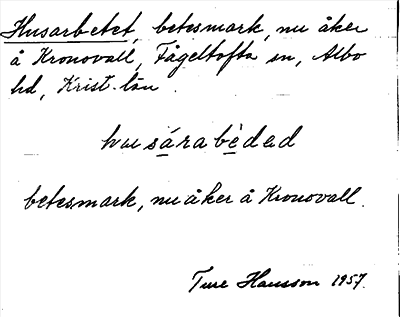 Husarbetet, betesmark, nu åker
å Kronovall, Fågeltofta sn, Albo
hd, Krist. län
husárabèded
betesmark, nu åker å Kronovall.
Ture Hansson 1957.